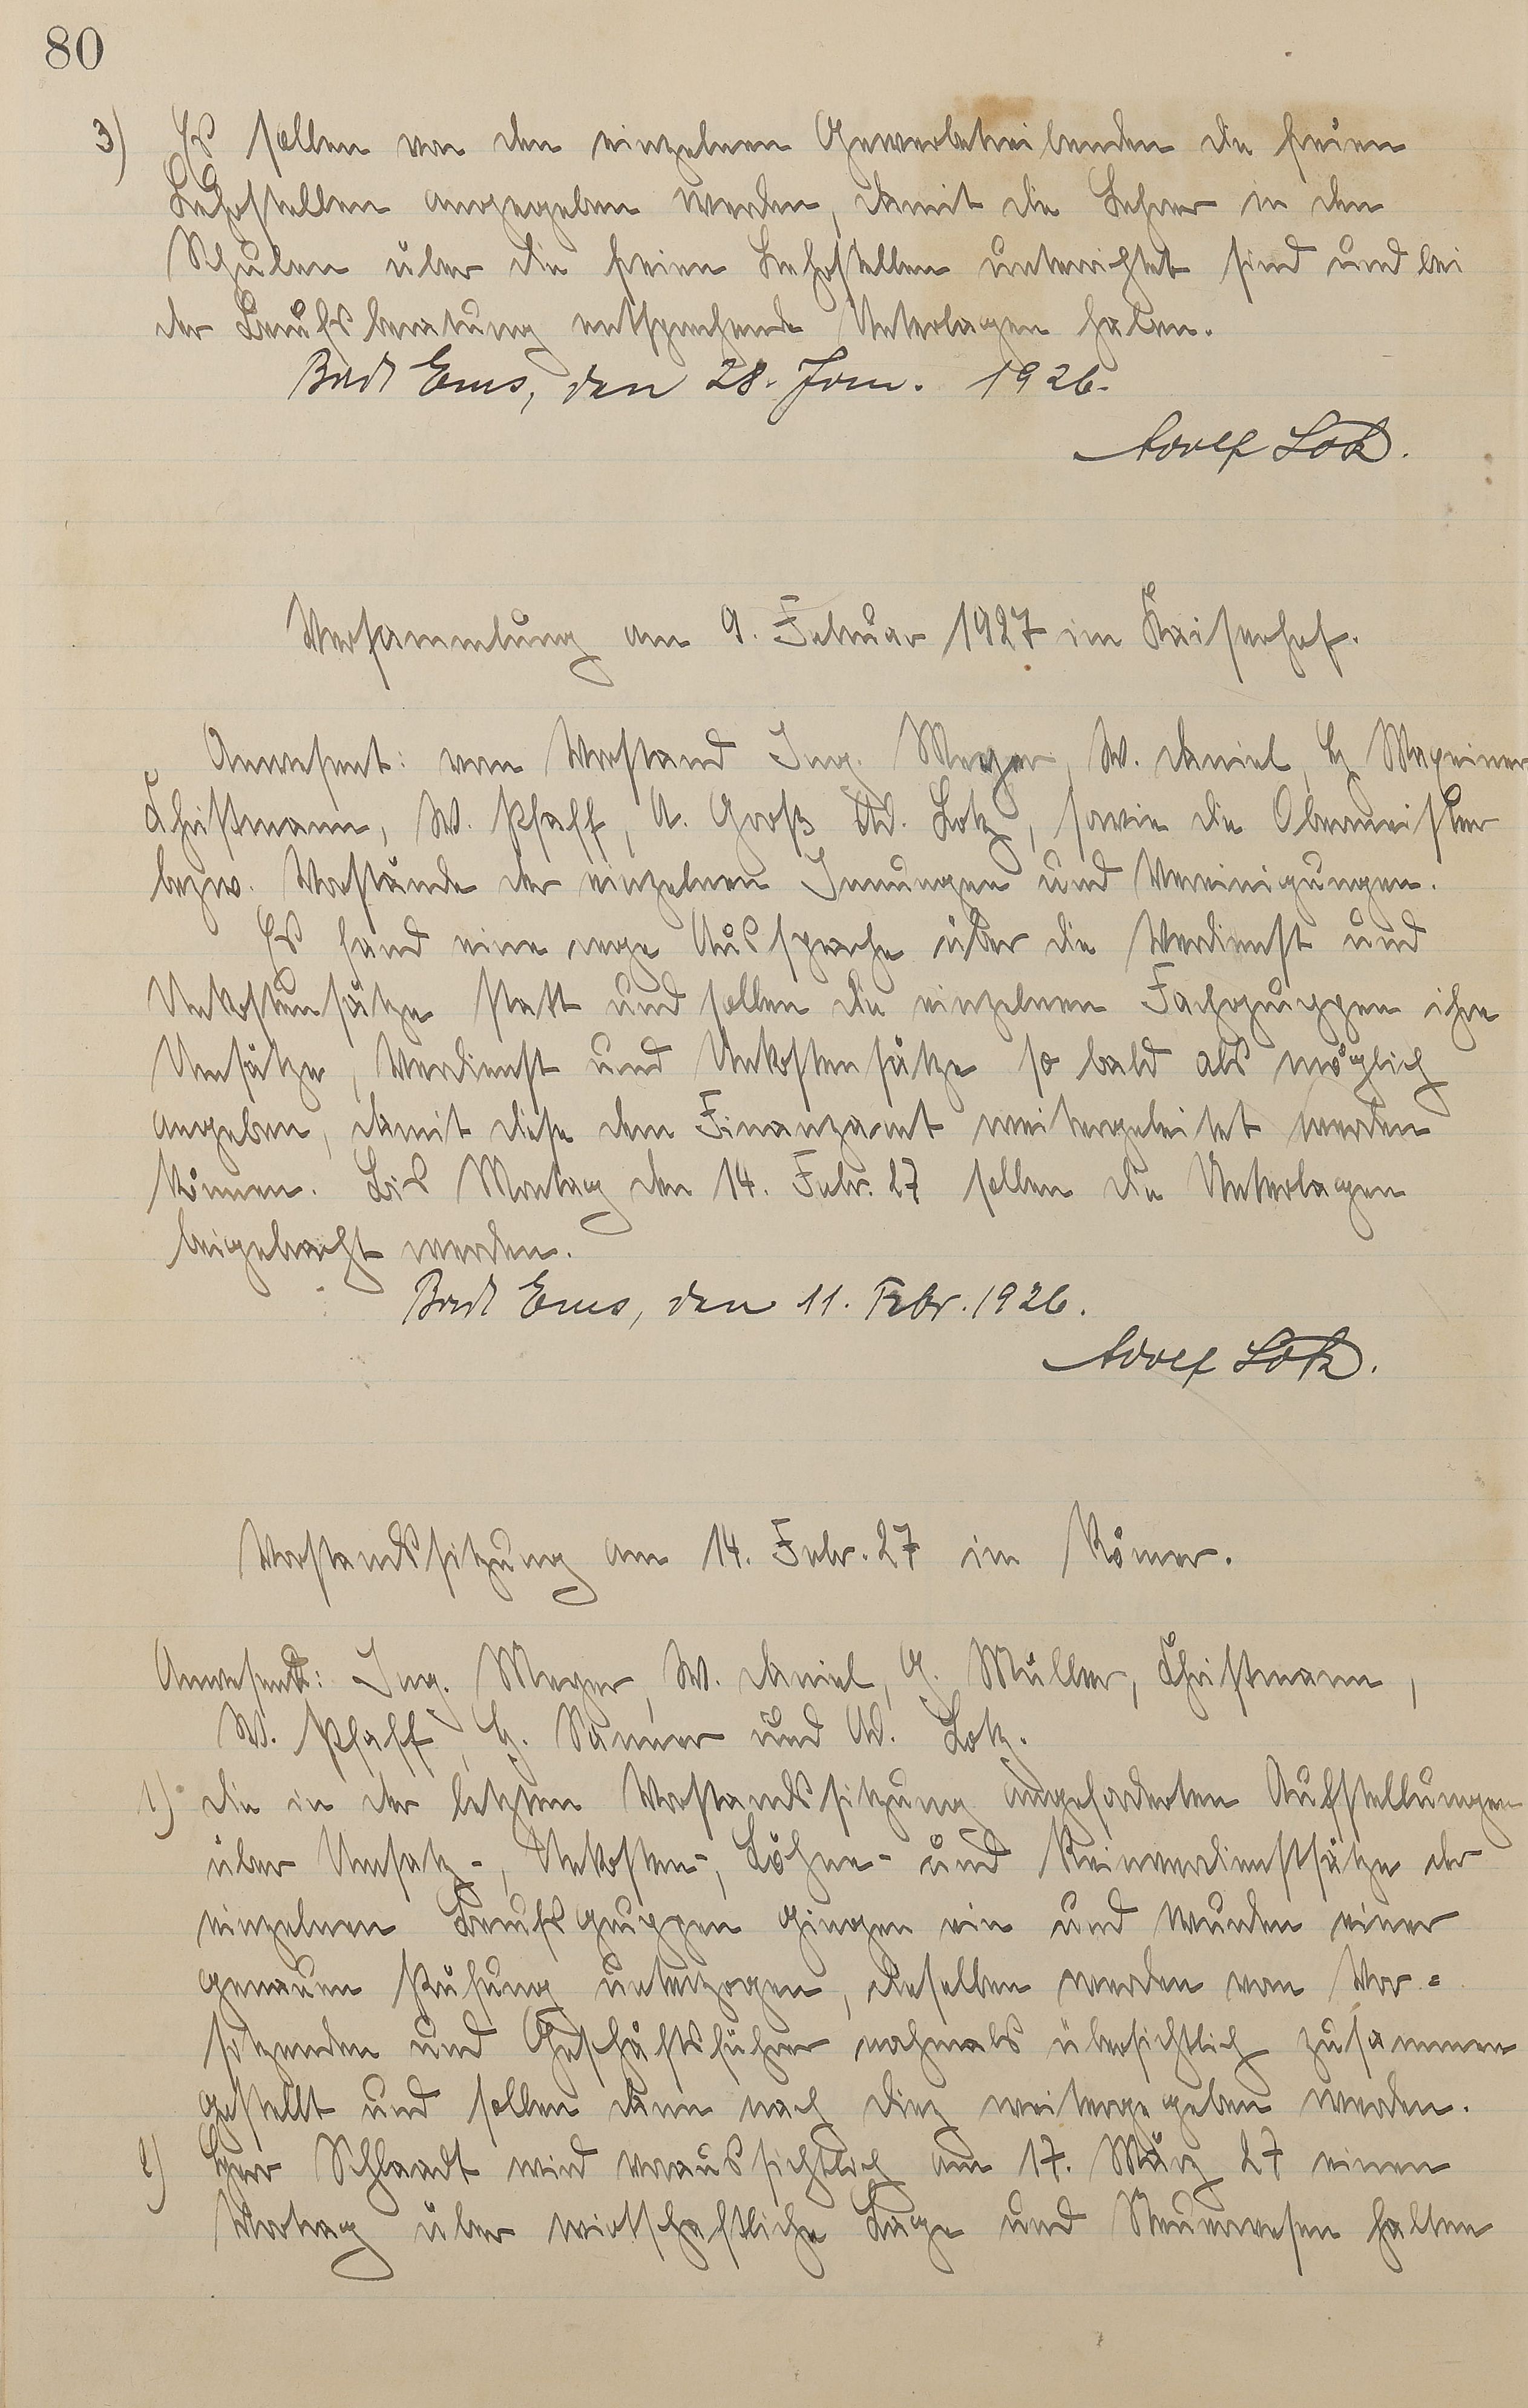 80
3) Es sollen von den einzelnen Gewerbetreibenden die freien
Lehrstellen angegeben werden, damit die Lehrer in den
Schulen über die freien Lehrstellen unterrichtet sind und bei
der Berufsberatung entsprechende Unterlagen haben.
Bad Ems, den 28. Jan. 1926.
Adolf Lotz.
Versammlung am 9. Februar 1927 im Kaiserhof.
Anwesent: vom Vorstand Ing. Meyer, W. Daniel,
Christmann, W. Pfaff, A. Groß Ad. Lotz, sowie die Obermeister
bezw. Vorstände der einzelnen Innungen und Vereinigungen.
Es fand eine rege Aussprache über die Verdienst und
Unkostensätze statt und sollen die einzelnen Fachgruppen ihre
Umsätze, Verdienst und Unkostensätze so bald als möglich
angeben, damit diese dem Finanzamt weitergeleitet werden
können. Bis Montag den 14. Febr. 27 sollen die Unterlagen
beigebracht werden.
Bad Ems, den 11. Febr. 1926.
Adolf Lotz.
Vorstandssitzung am 14. Febr. 27 im Römer.
Anwesend: Ing. Meyer, W. Daniel, G. Müller, Christmann,
W. Pfaff, H. Sanner und Ad. Lotz.
1) Die in der letzten Vorstandssitzung angeforderten Aufstellungen
über Umsatz-, Unkosten-, Löhne- und Reinverdienstsätze der
einzelnen Berufsgruppen gingen ein und wurden einer
genauen Prüfung unterzogen, dieselben werden vom Vor=
sitzenden und Geschäftsführer nochmals übersichtlich zusammen
gestellt und sollen dann nach Diez weitergegeben werden.
2) Herr Schlaadt wird voraussichtlich am 17. März 27 einen
Vortrag über wirtschaftliche Lage und Steuerwesen halten